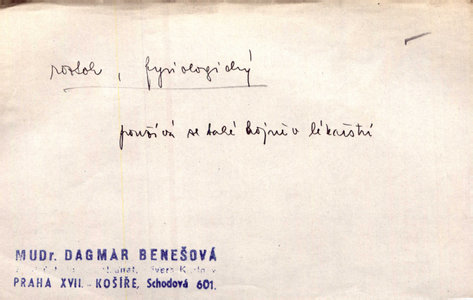 roztok, fysiologický
používá se také hojně v lékařství
MUDr. DAGMAR BENEŠOVÁ
PRAHA XVII. - KOŠÍŘE, Schodová 601.